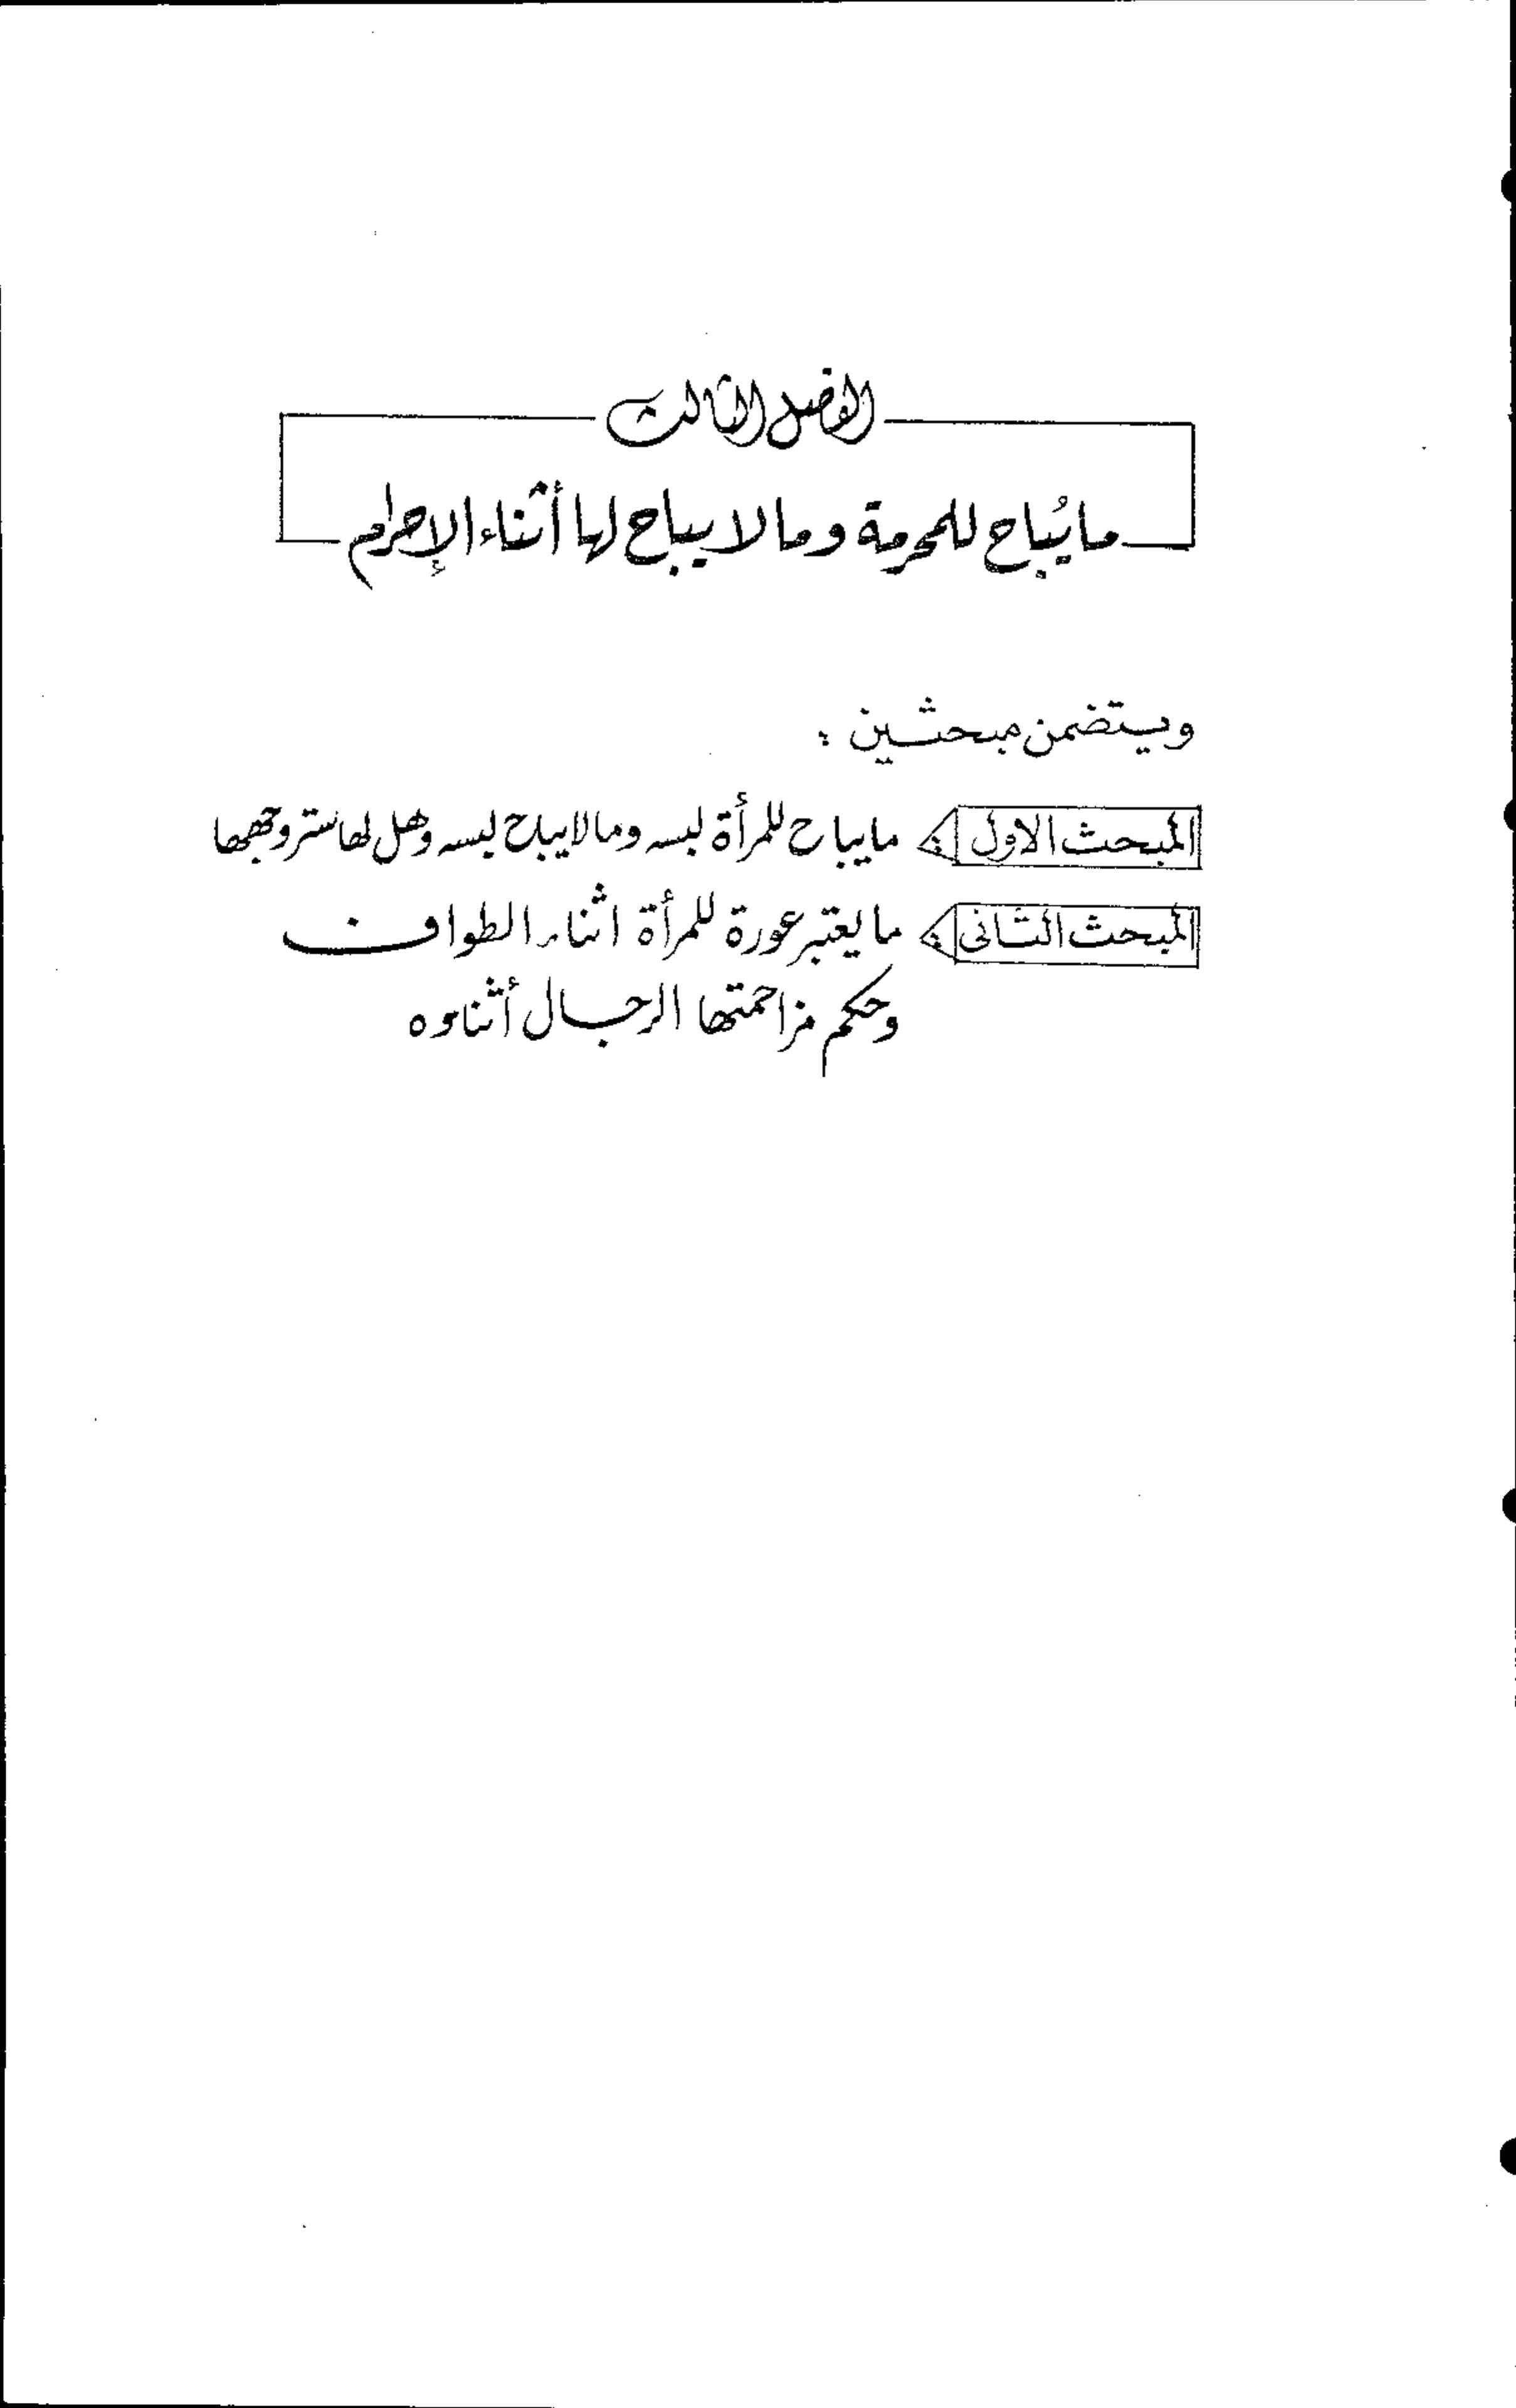 الفصل الثالث
ما يُباح للمحرمة وما لا يباح لها أثناء الإحرام
ويتضمن مبحثين :
المبحث الاول : ما يباح للمرأة لبسه وما لا يباح لبسه وهل لها ستر وجهها
المبحث الثاني : ما يعتبر عورة للمرأة اثناء الطواف
وحكم مزاحمتها الرجال أثناءه